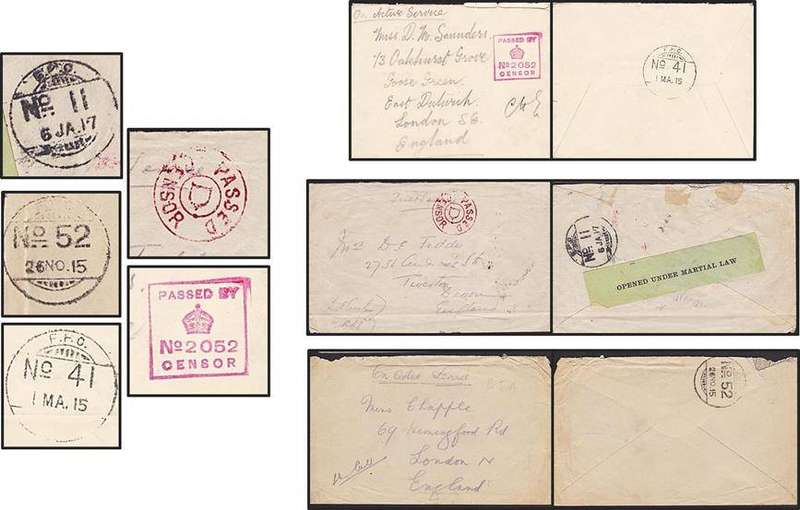 F.P.O.
No 11
6 JA.17
No 52
26 NO.15
F.P.O.
No 41
1 MA.15
PASSED
CENSOR
D.
PASSED BY
No 2052
CENSOR
On Active Service
Miss D. M. Saunders
13 Oakhurst Grove
Goose Green
East Dulwich
London S.E.
England
PASSED BY
No 2052
CENSOR
F.P.O.
No 41
1 MA.15
PASSED
CENSOR
D.
Tiverton
Devon
England
F.P.O.
No 11
6 JA.17
OPENED UNDER MARTIAL LAW
Miss Chapple
69 Hemingford Rd
London N
England
No 52
26 NO.15